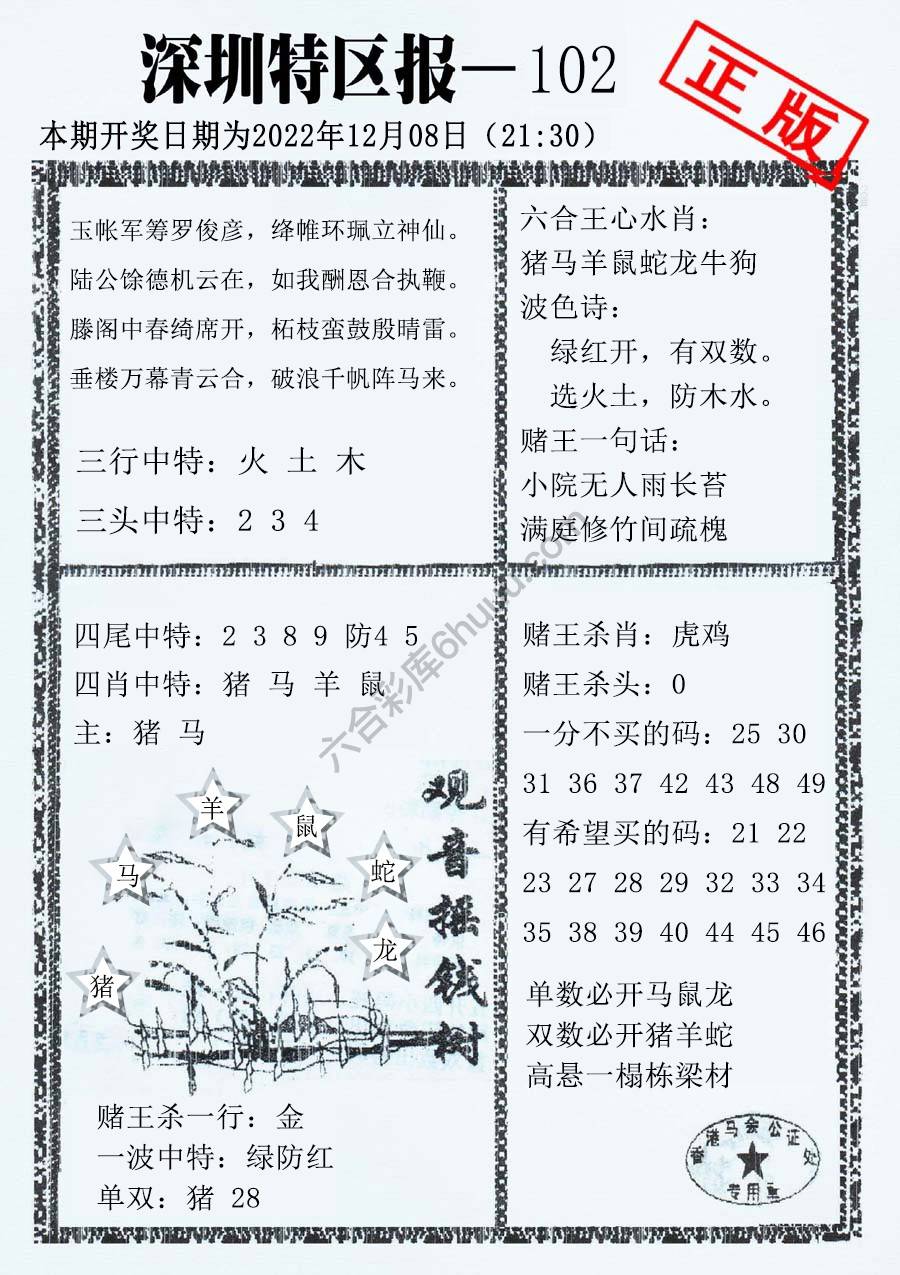 深圳特区报—102
正版
本期开奖日期为2022年12月08日（21:30）
玉帐军筹罗俊彦，绛帷环珮立神仙。
陆公馀德机云在，如我酬恩合执鞭。
滕阁中春绮席开，柘枝蛮鼓殷晴雷。
垂楼万幕青云合，破浪千帆阵马来。
三行中特：火 土 木
三头中特：2 3 4
六合王心水肖：
猪马羊鼠蛇龙牛狗
波色诗：
绿红开，有双数。
选火土，防木水。
赌王一句话：
小院无人雨长苔
满庭修竹间疏槐
四尾中特：2 3 8 9 防4 5
四肖中特：猪 马 羊 鼠
主：猪 马
羊
鼠
马
蛇
龙
猪
观音摇钱树
赌王杀一行：金
一波中特：绿防红
单双：猪 28
赌王杀肖：虎鸡
赌王杀头：0
一分不买的码：25 30
31 36 37 42 43 48 49
有希望买的码：21 22
23 27 28 29 32 33 34
35 38 39 40 44 45 46
单数必开马鼠龙
双数必开猪羊蛇
高悬一榻栋梁材
香港马会公证处
专用章
六合彩库6huuu.com